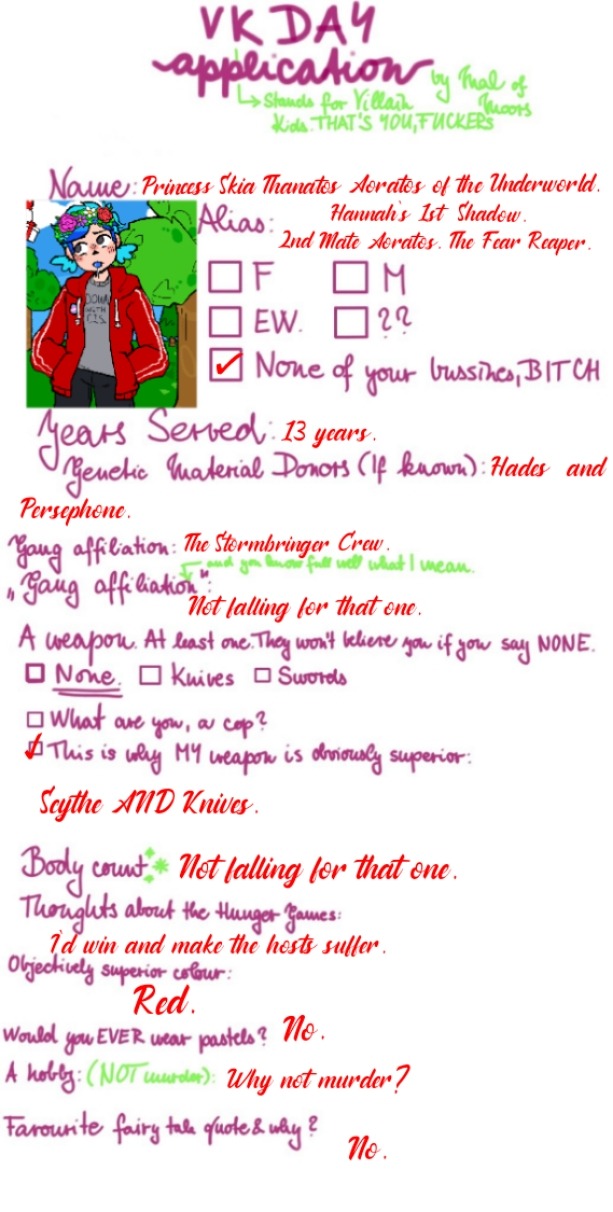 VK DAY
application
by Mal of
Moors
Stands for Villain
Kids. THAT'S YOU, FUCKERS
Name: Princess Skia Thanatos Aoratos of the Underworld.
Alias: Hannah's 1st Shadow.
2nd Mate Aoratos. The Fear Reaper.
F M
EW. ??
None of your bussines, BITCH
DOWN
WITH
CIS
Years Served: 13 years.
Genetic Material Donors (If known): Hades and
Persephone.
Gang affiliation: The Stormbringer Crew.
and you know full well what I mean.
„Gang affiliation":
Not falling for that one.
A weapon. At least one. They won't believe you if you say NONE.
None. Knives Swords
What are you, a cop?
This is why MY weapon is obviously superior:
Scythe AND Knives.
Body count: Not falling for that one.
Thoughts about the Hunger Games:
I'd win and make the hosts suffer.
Objectively superior colour:
Red.
Would you EVER wear pastels? No.
A hobby: (NOT murder): Why not murder?
Favourite fairy tale quote & why?
No.